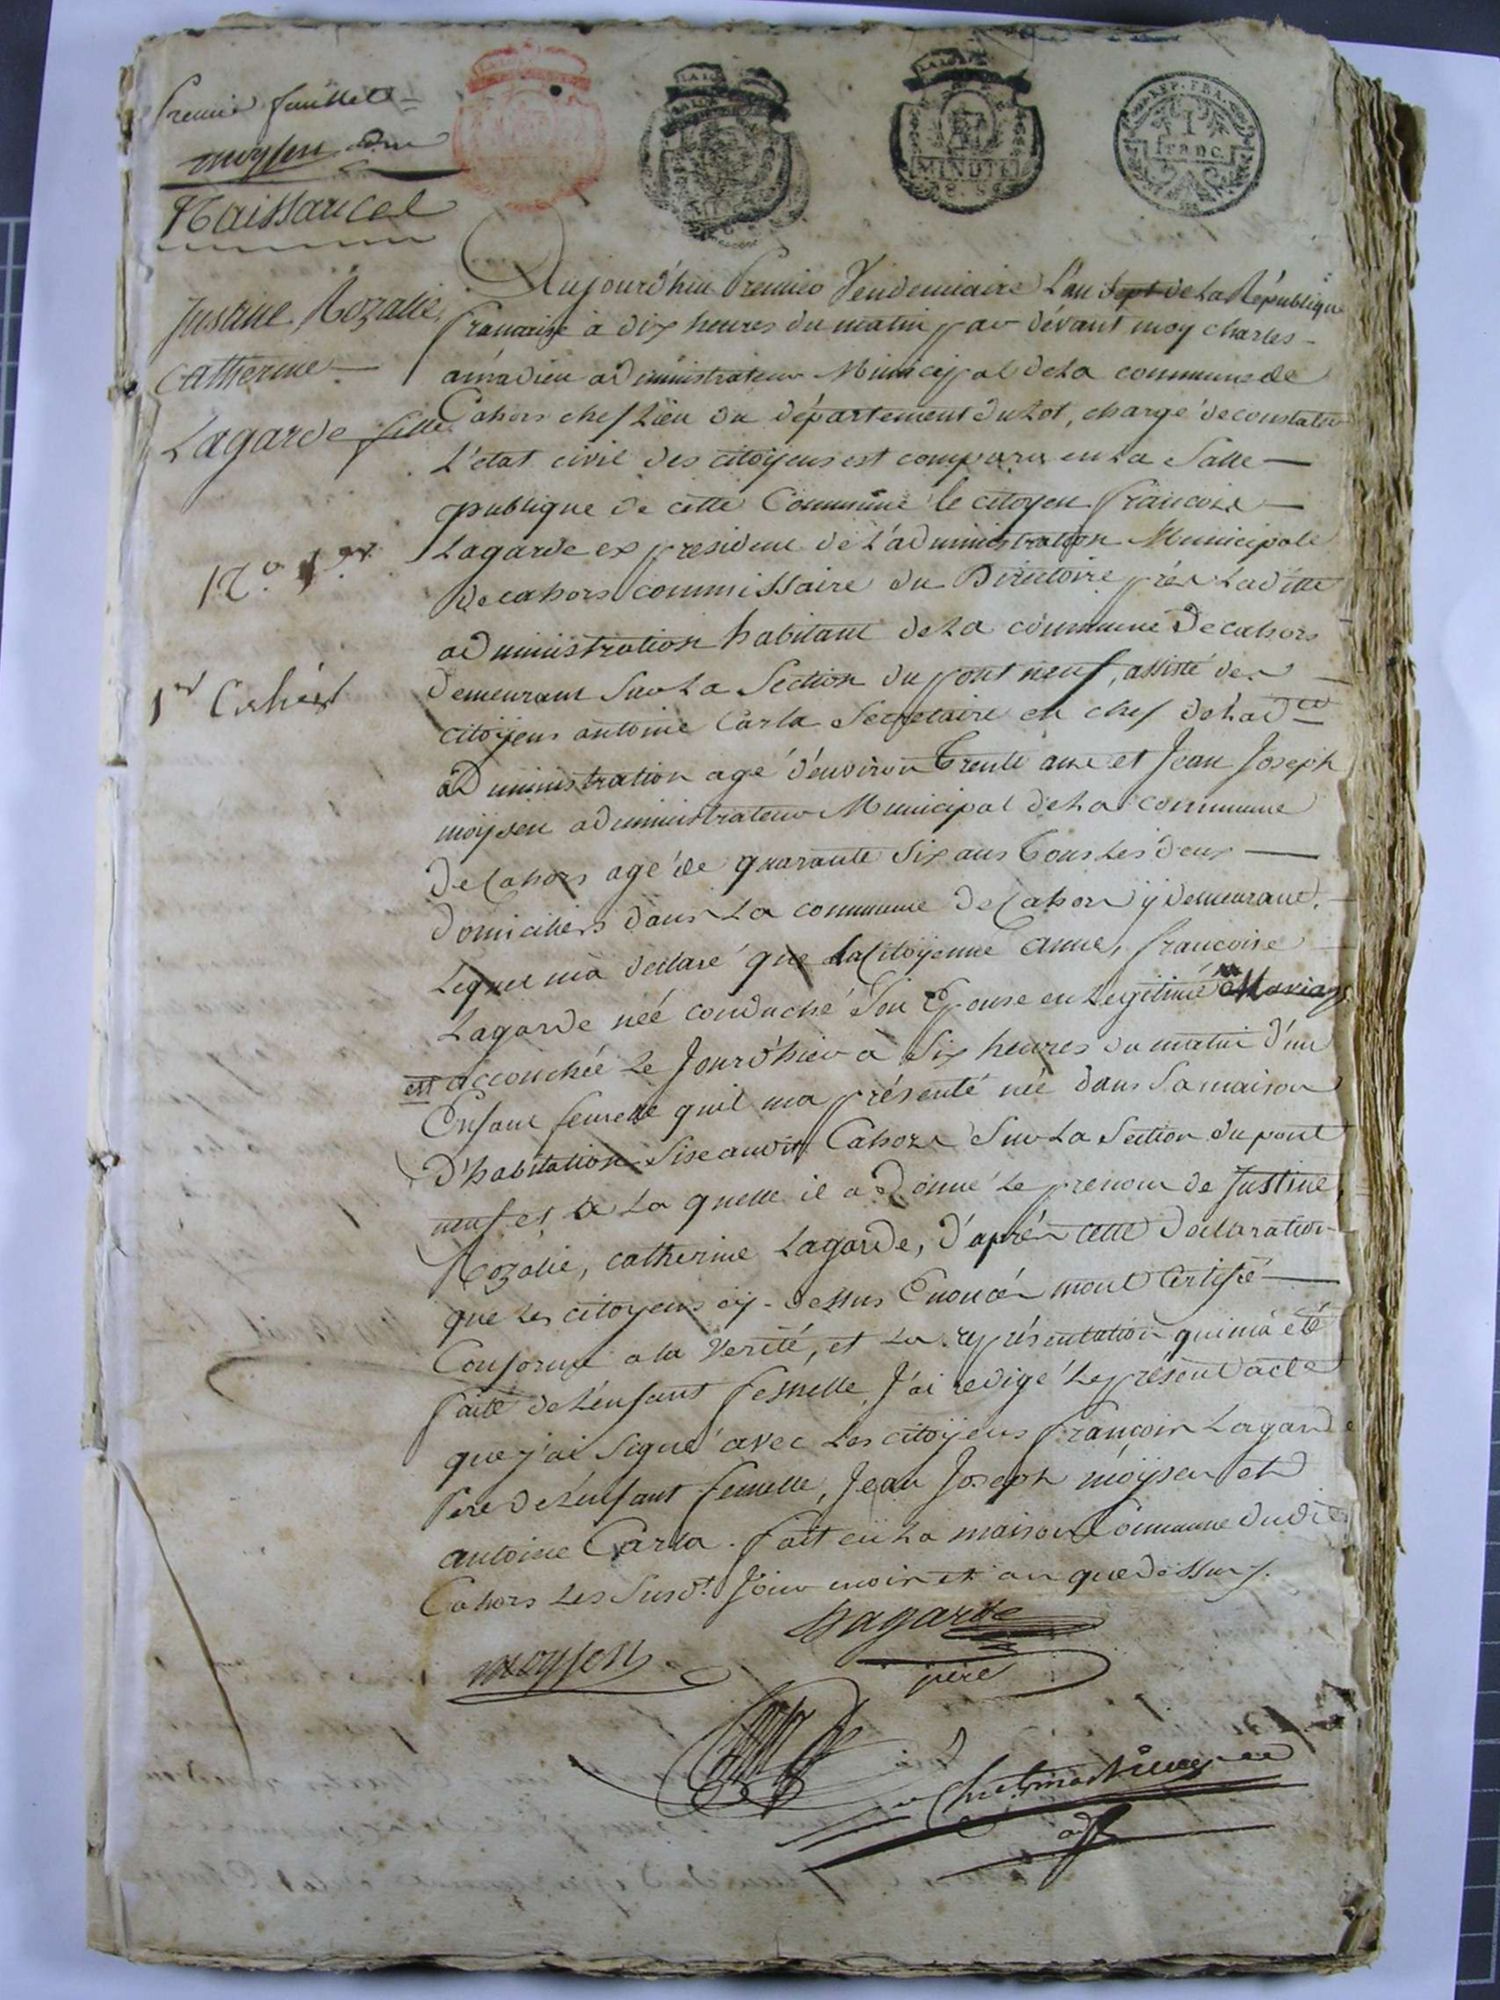 Premier feuillet
moysen adm
Naissance
REP. FRA.
1
franc.
MINUTE
Justine Rozalie,
Catherine
Lagarde fille
N.o 1er
1er Cahier
Aujourd'hui Premier Vendemiaire L'an Sept de La République
francaise à dix heures du matin par dévant moy charles
amadieu administrateur Municipal de La commune de
Cahors chef Lieu du département du Lot, chargé de constater
L'état civil des citoyens est comparu en La Salle
publique de cette Commune le citoyen francois
Lagarde ex president de L'administration Municipale
de cahors commissaire du Directoire près Laditte
administration habitant de La commune de cahors
demeurant sur La Section du pont neuf, assisté des
citoyens antoine Carla Secretaire en chef de Lad.te
administration agé d'environ trente ans et Jean Joseph
moysen administrateur Municipal de La commune
de Cahors agé de quarante six ans tous Les deux
domiciliers dans La commune de Cahors y demeurant.
Lequel m'a déclaré que La Citoyenne anne, francoise
Lagarde née conduché Son Epouse en Legitime Mariage
est accouchée Le Jourd'hier à Six heures du matin d'un
Enfant femelle quil ma présenté née dans Sa maison
D'habitation Sise audit Cahors Sur La Section du pont
neuf et à La quelle il a donné Le prenom de Justine
Rozalie, catherine Lagarde, d'après cette déclaration
que Les citoyens cy-dessus Enoncés mont Certifié
Conforme a la Verité, et La représentation qui m'a été
faite de L'enfant femelle, J'ai redigé Le present acte
que j'ai Signé avec Les citoyens françois Lagarde
Père de L'enfant femelle, Jean Joseph moysen et
antoine Carla. fait en La maison Commune dudit
Cahors Les Susd.t Jour mois et an que dessus.
Lagarde
moysen
père